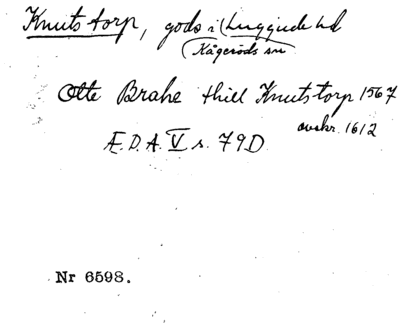 Knutstorp, gods i Luggude hd
Kågeröds sn
Otte Brahe thill Knutstorp 1567
avskr. 1612
Æ.D.A. V s. 79D
Nr 6598.